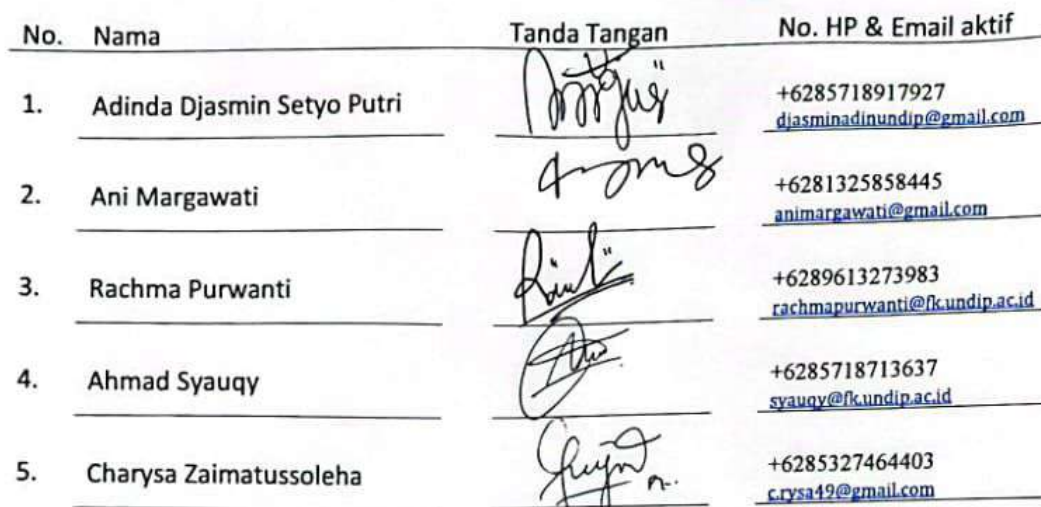 No. Nama Tanda Tangan No. HP & Email aktif
1. Adinda Djasmin Setyo Putri +6285718917927
djasminadinundip@gmail.com
2. Ani Margawati +6281325858445
animargawati@gmail.com
3. Rachma Purwanti +6289613273983
rachmapurwanti@fk.undip.ac.id
4. Ahmad Syauqy +6285718713637
syauqy@fk.undip.ac.id
5. Charysa Zaimatussoleha +6285327464403
c.rysa49@gmail.com